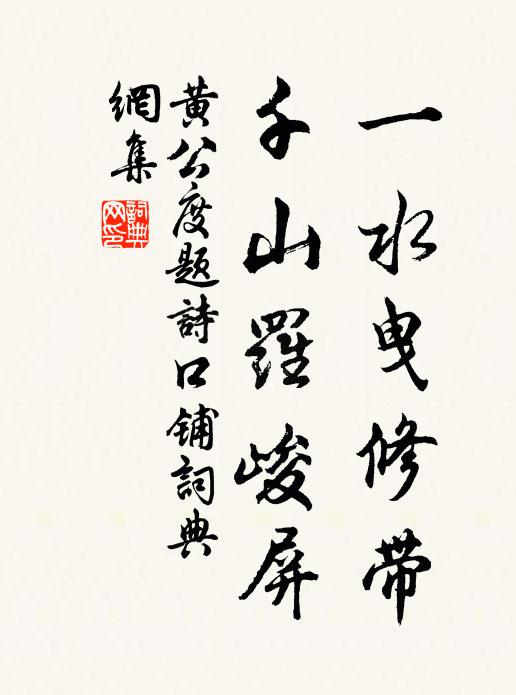 一水曳修带
千山羅峻屏
黄公度题詩口铺詞典
網集
詞典网印